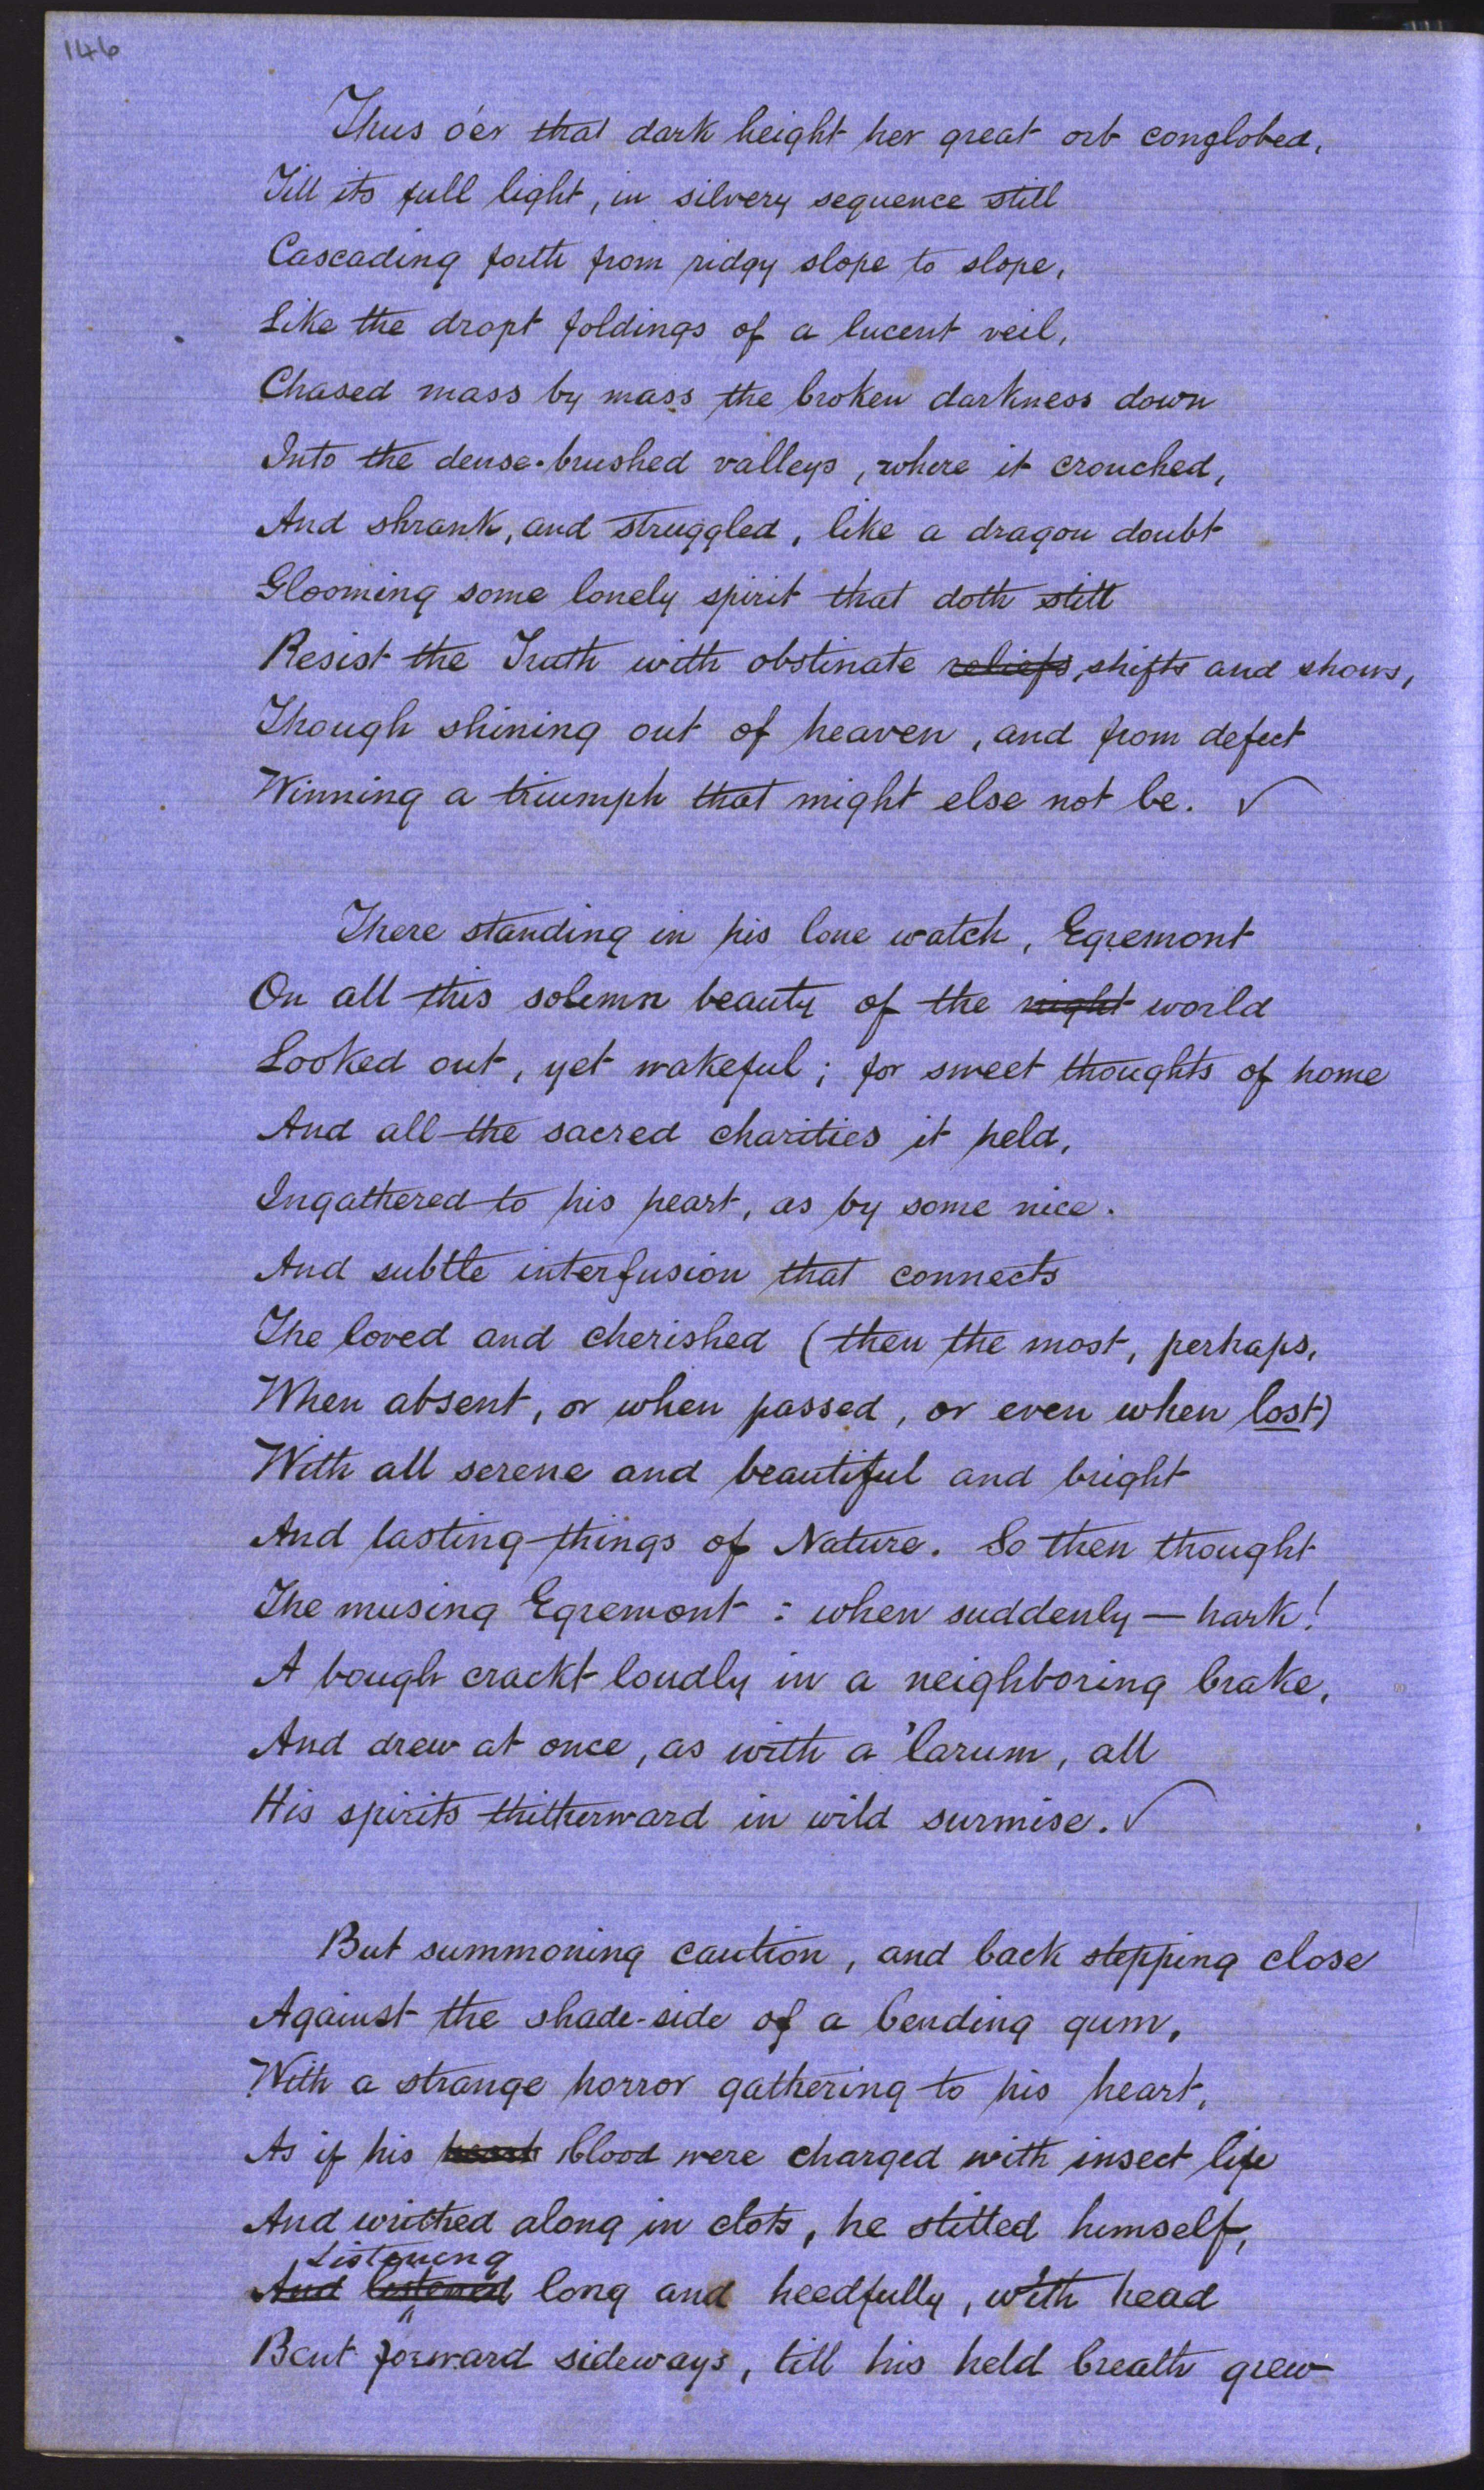 146
Thus o'er that dark height her great orb conglobed,
Till its full light, in silvery sequence still
Cascading forth from ridgy slope to slope,
Like the dropt foldings of a lucent veil,
Chased mass by mass the broken darkness down
Into the dense-brushed valleys, where it crouched,
And shrank, and struggled, like a dragon doubt
Glooming some lonely spirit that doth still
Resist the Truth with obstinate reliefs, shifts and shows,
Though shining out of heaven, and from defect
Winning a triumph that might else not be. ✓
There standing in his lone watch, Egremont
On all this solemn beauty of the night world
Looked out, yet wakeful; for sweet thoughts of home
And all the sacred charities it held,
Ingathered to his heart, as by some nice.
And subtle interfusion that connects
The loved and cherished (then the most, perhaps,
When absent, or when passed, or even when lost)
With all serene and beautiful and bright
And lasting things of Nature. So then thought
The musing Egremont: when suddenly — hark!
A bough crackt loudly in a neighboring brake,
And drew at once, as with a 'larum, all
His spirits thitherward in wild surmise. ✓
But summoning caution, and back stepping close
Against the shade-side of a bending gum,
With a strange horror gathering to his heart,
As if his blood were charged with insect life
And writhed along in clots, he stilled himself,
Listening
And listened long and heedfully, with head
Bent forward sideways, till his held breath grew